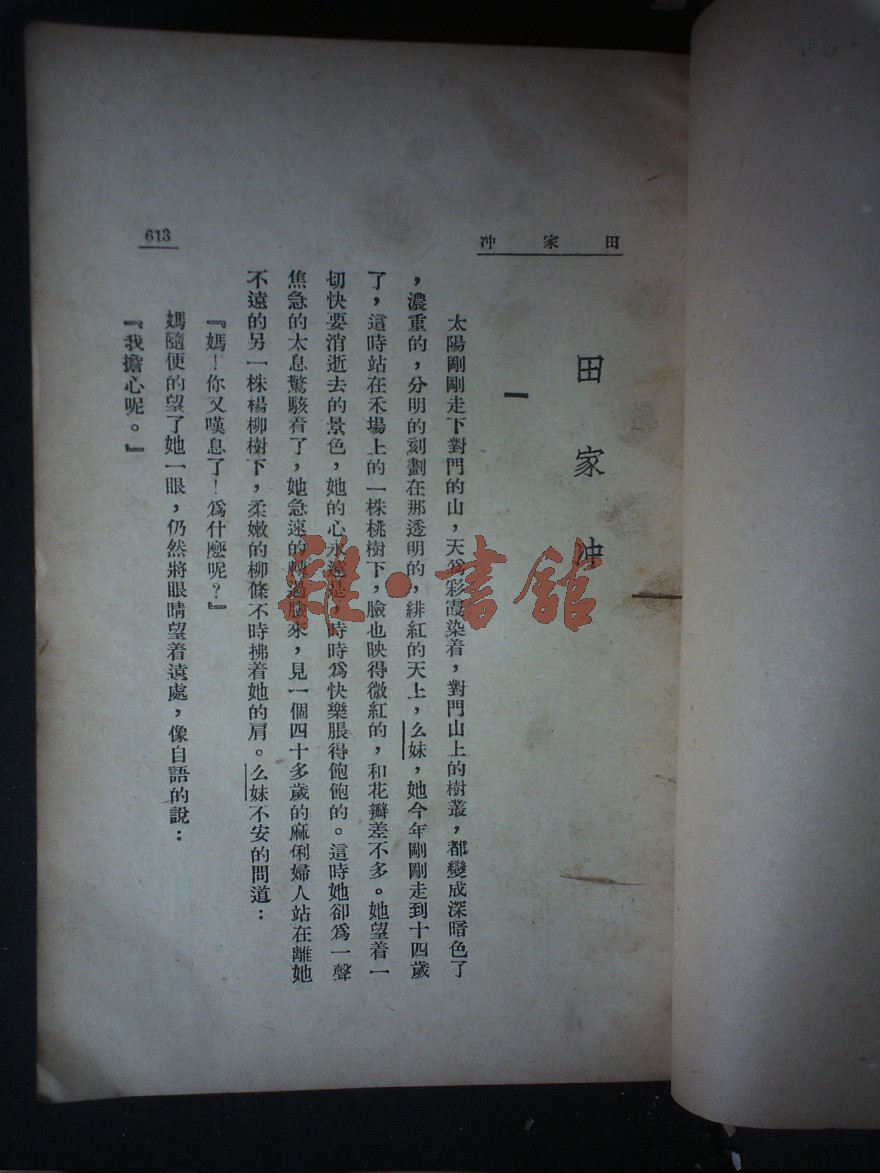 田家冲
613
田家冲
一
太陽剛剛走下對門的山，天爲彩霞染着，對門山上的樹叢，都變成深暗色了
，濃重的，分明的刻劃在那透明的，緋紅的天上，么妹，她今年剛剛走到十四歲
了，這時站在禾場上的一株桃樹下，臉也映得微紅的，和花瓣差不多。她望着一
切快要消逝去的景色，她的心永遠是，時時爲快樂脹得飽飽的。這時她卻爲一聲
焦急的太息驚駭着了，她急速的轉過臉來，見一個四十多歲的麻俐婦人站在離她
不遠的另一株楊柳樹下，柔嫩的柳條不時拂着她的肩。么妹不安的問道：
『媽！你又嘆息了！爲什麼呢？』
媽隨便的望了她一眼，仍然將眼睛望着遠處，像自語的說：
『我擔心呢。』
雜·書館